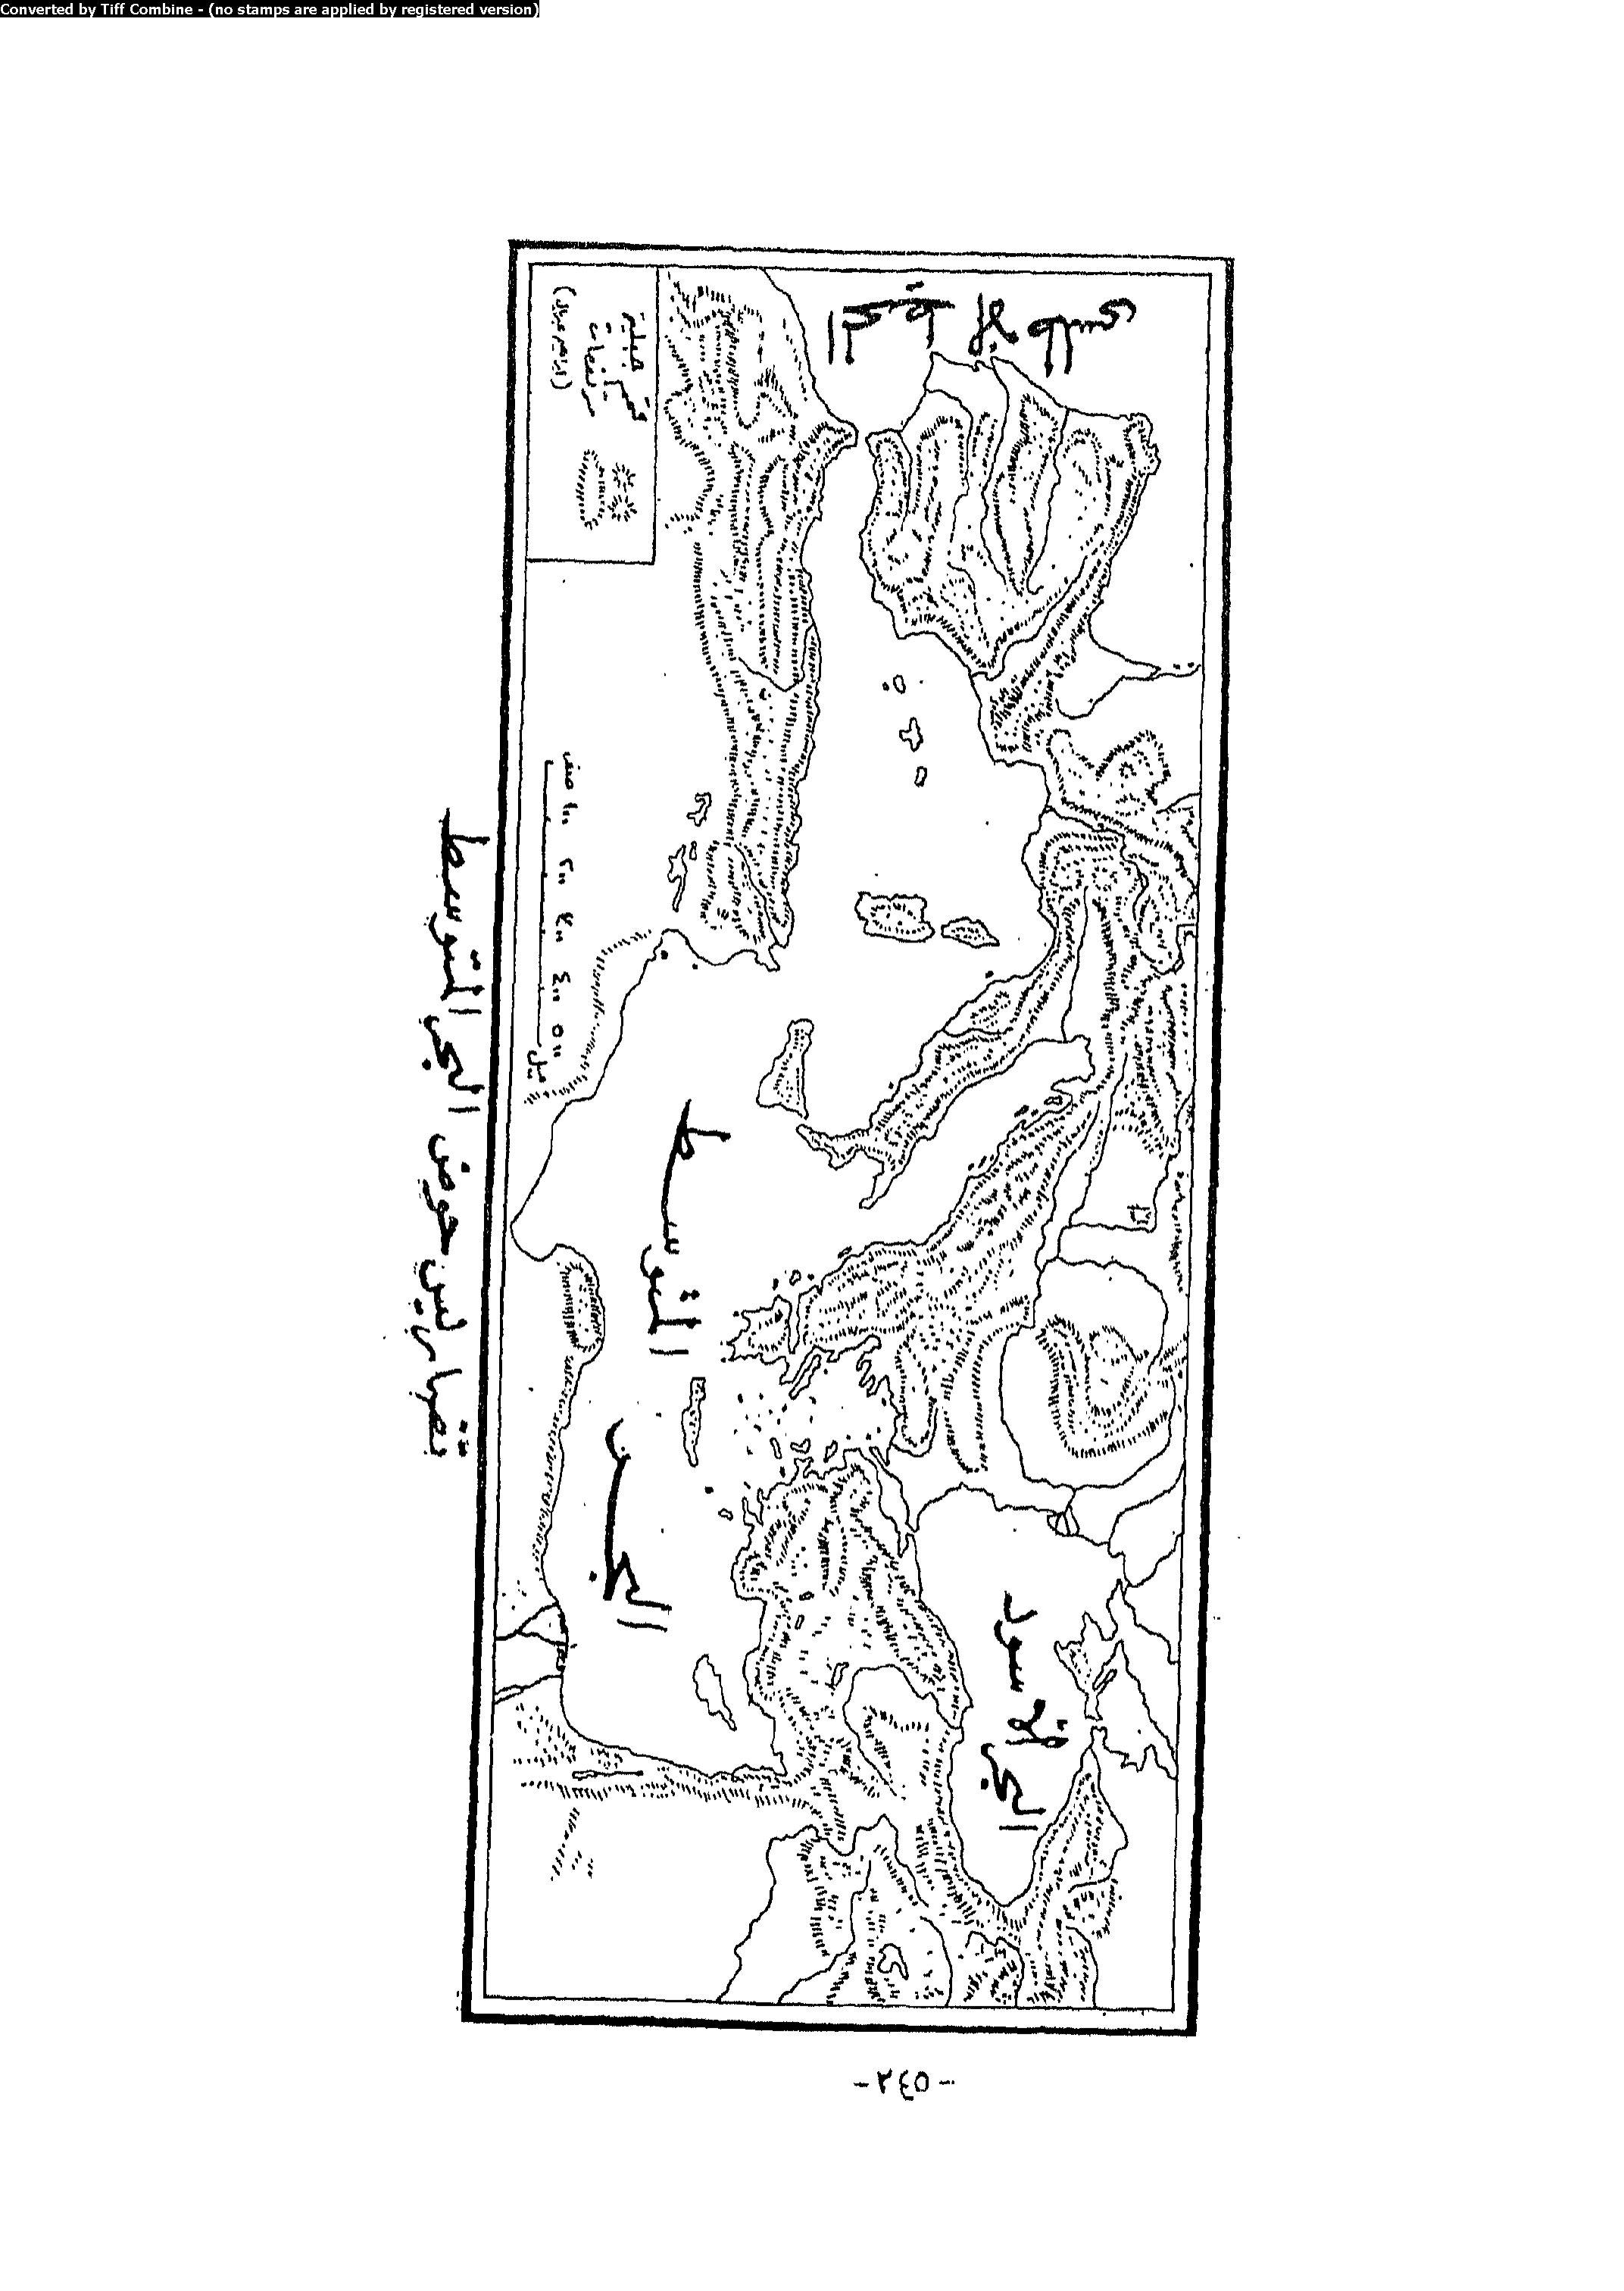 Converted by Tiff Combine - (no stamps are applied by registered version)
البحر الأسود
البحر المتوسط
قمم جبلية
مرتفعات
صفر ١٠٠ ٢٠٠ ٣٠٠ ٤٠٠ ٥٠٠ ميل
تضاريس حوض البحر المتوسط
-٢٤٥-